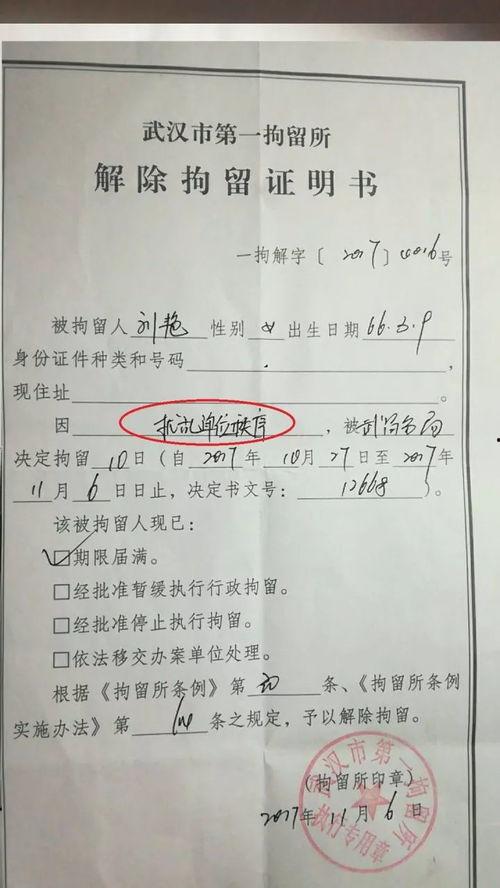 武汉市第一拘留所
解除拘留证明书
一拘解字〔2017〕4016号
被拘留人刘艳性别女出生日期66.3.9
身份证件种类和号码,
现住址。
因扰乱单位秩序,被武昌分局
决定拘留10日(自2017年10月27日至2017年
11月6日日止,决定书文号:12668)。
该被拘留人现已:
☑期限届满。
□经批准暂缓执行行政拘留。
□经批准停止执行拘留。
□依法移交办案单位处理。
根据《拘留所条例》第条、《拘留所条例
实施办法》第条之规定,予以解除拘留。
(拘留所印章)
2017年11月6日
武汉市第一拘留所
执行专用章